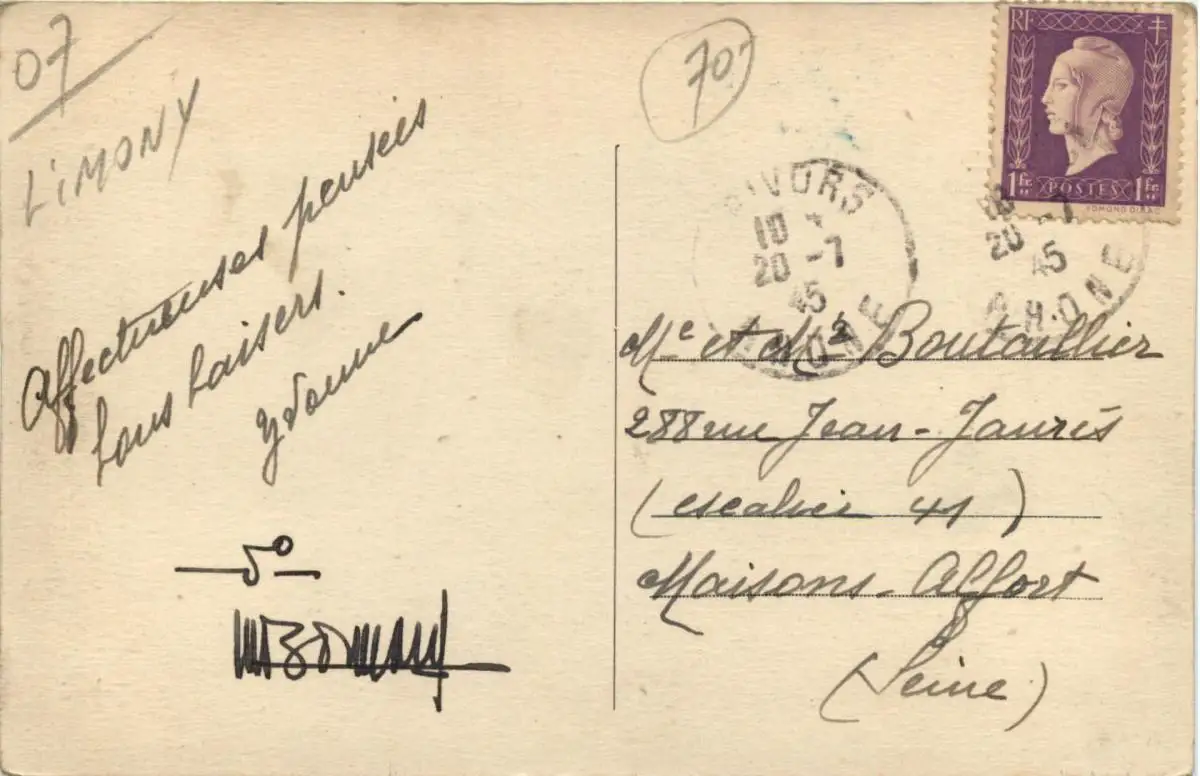 07
LIMONY
Affectueuses pensées
bons baisers.
Yvonne
50
70
RF
1 Fr POSTES 1 Fr
EDMOND DULAC
GIVORS
10
20 -7
45
RHONE
20 -7
45
RHONE
Me et Mr Boutaillier
288 rue Jean-Jaurès
(escalier 41)
Maisons-Alfort
(Seine)